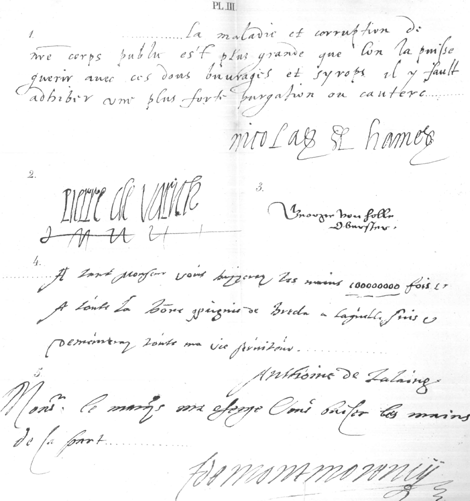 PL. III
1 ........ La maladie et corruption de
nre corps publicq est plus grande que lon la puisse
guerir avec ces dous bruvages et syrops il y fault
adhiber une plus forte purgation ou cautere
nicolas de hames
2.
pierre de varick
3.
Georg von Holle
Oberster.
4.
A tant Monsieur vous baiseray les mains 100000000 fois et
A toute la bonne de Breda a laquelle suis et
Demeureray toute ma vie serviteur.
Anthoine de Lalaing
5
Monsr. le marquis ma charge vous baiser les mains
de sa part